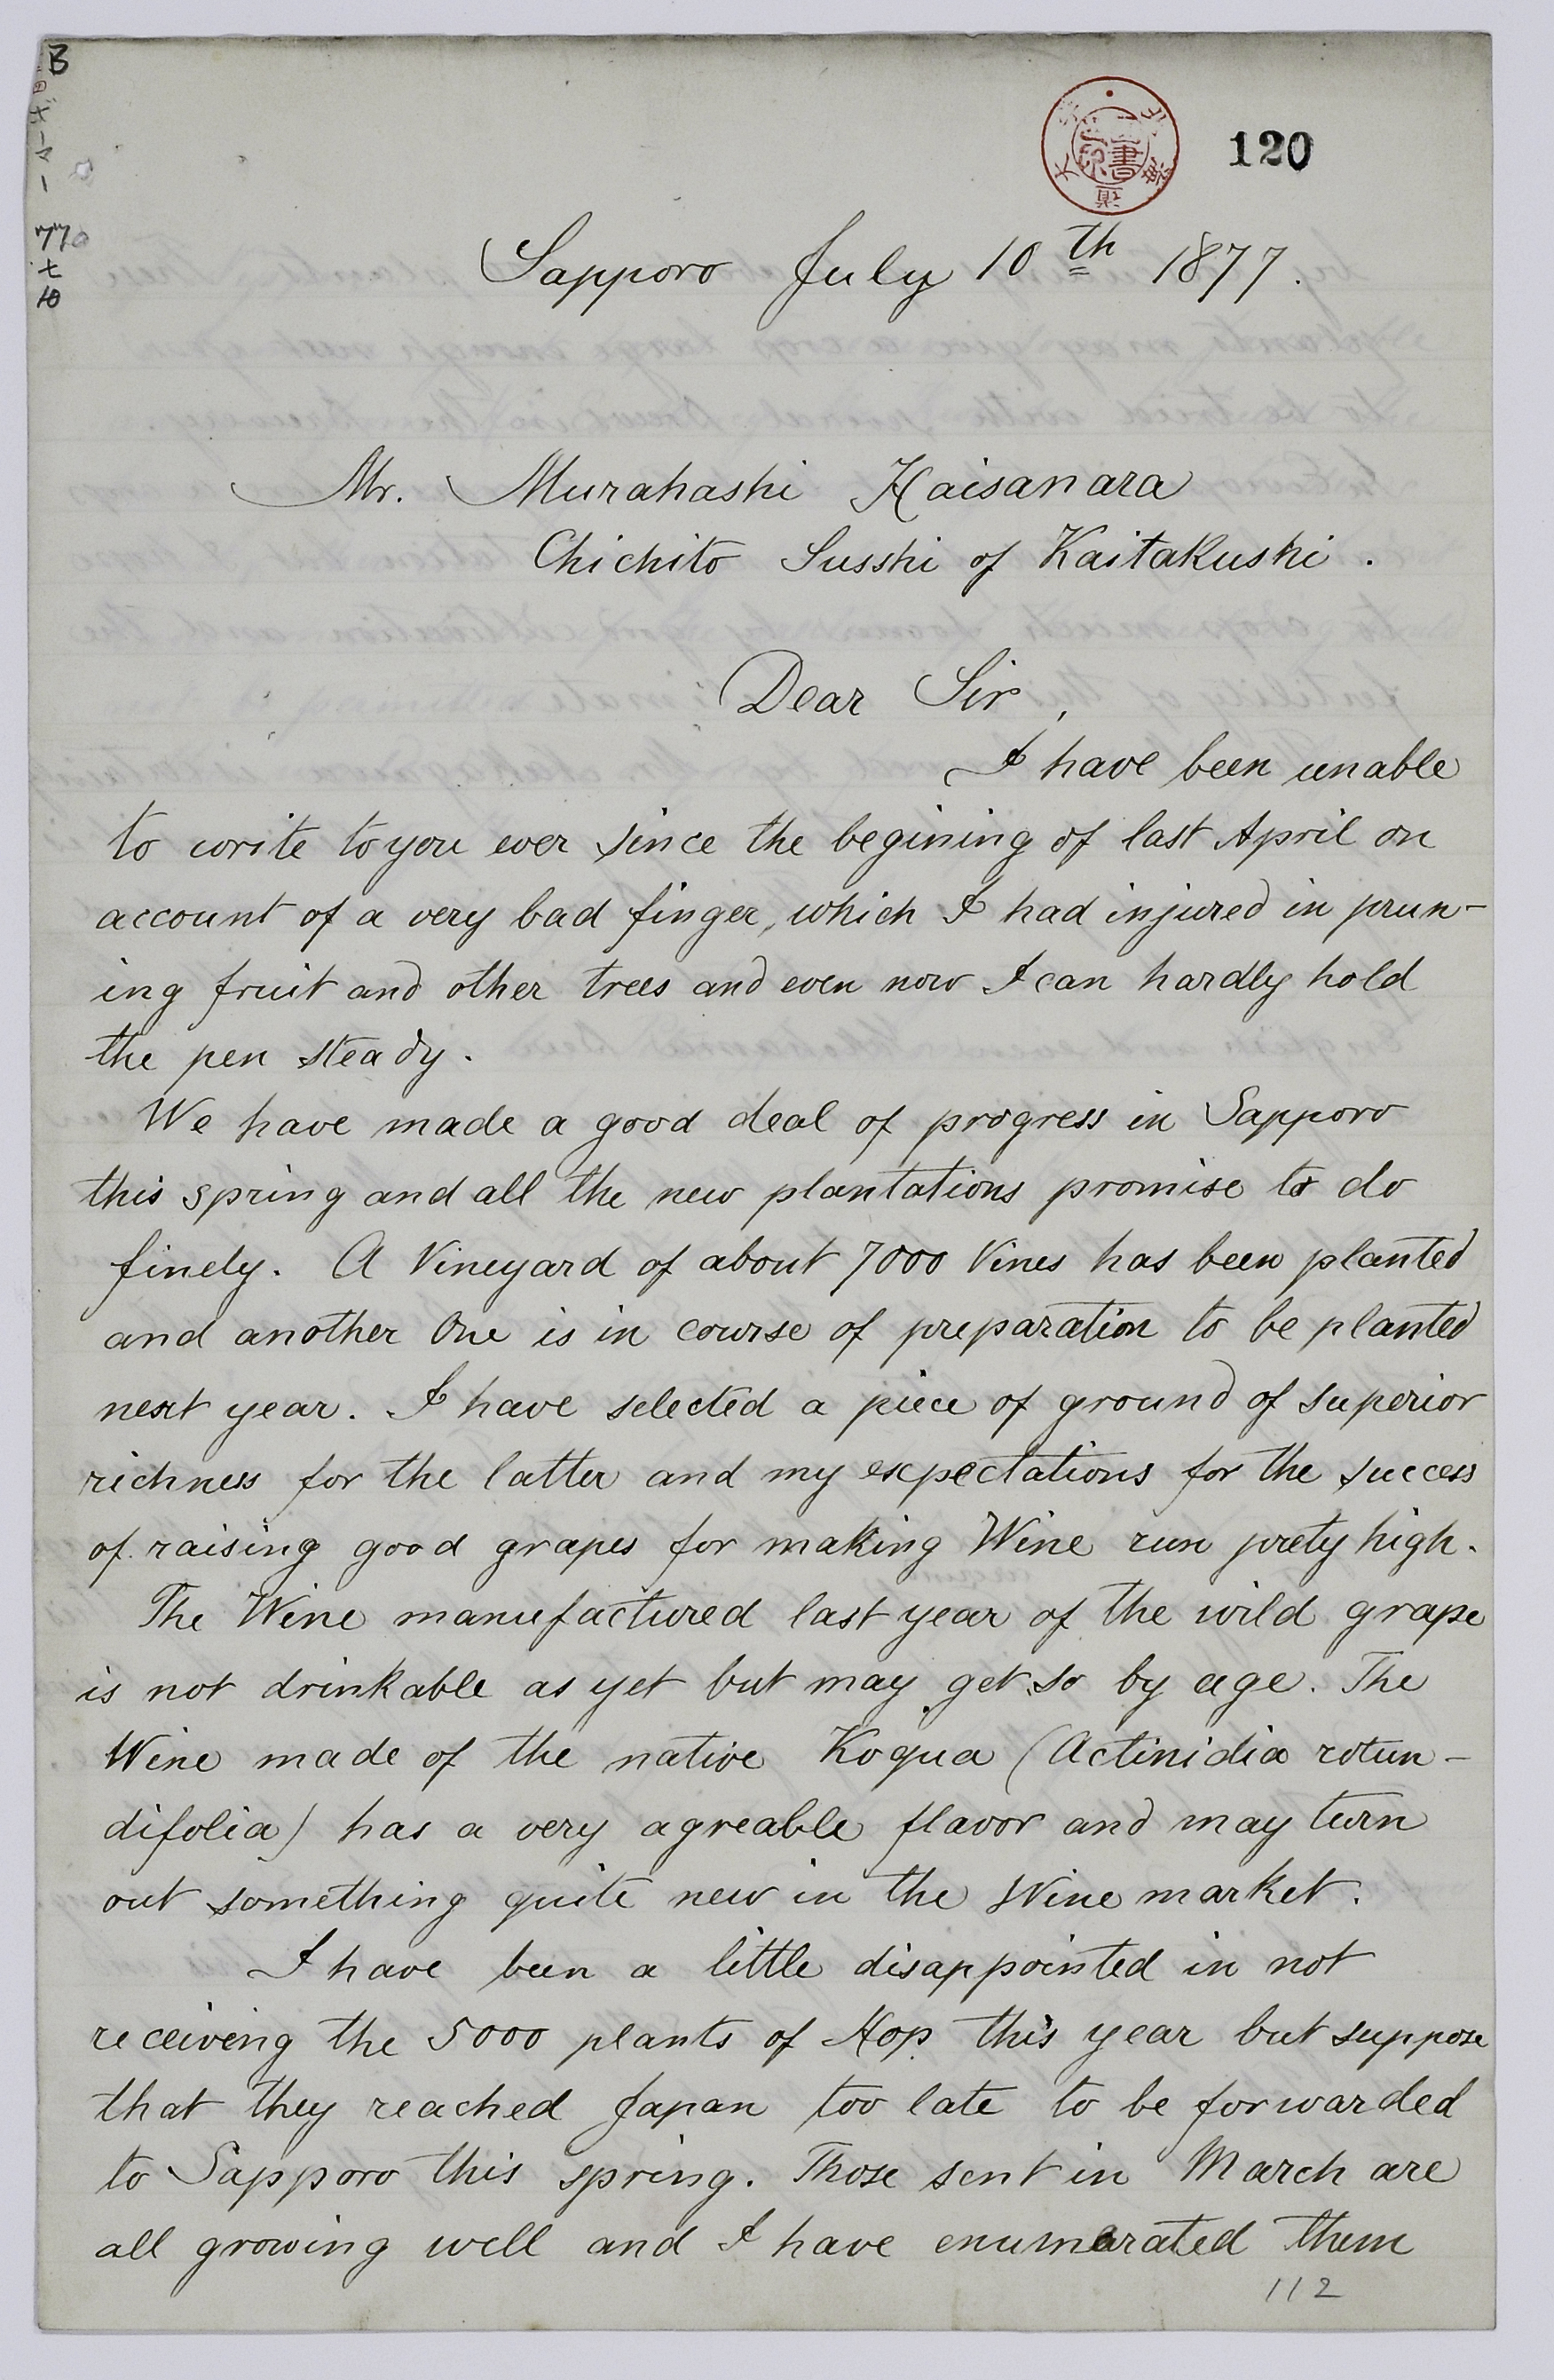 B
120
770
Sapporo July 10th 1877.
Mr. Murahashi Haisanara
Chichito Susshi of Kaitakushi.
Dear Sir,
I have been unable
to write to you ever since the begining of last April on
account of a very bad finger, which I had injured in prun-
ing fruit and other trees and even now I can hardly hold
the pen steady.
We have made a good deal of progress in Sapporo
this spring and all the new plantations promise to do
finely. A Vineyard of about 7000 Vines has been planted
and another One is in course of preparation to be planted
next year. I have selected a piece of ground of superior
richness for the latter and my expectations for the success
of raising good grapes for making Wine run prety high.
The Wine manufactured last year of the wild grape
is not drinkable as yet but may get so by age. The
Wine made of the native Koqua (Actinidia rotun-
difolia) has a very agreable flavor and may turn
out something quite new in the Wine market.
I have been a little disappointed in not
receiving the 5000 plants of Hop this year but suppose
that they reached Japan too late to be forwarded
to Sapporo this spring. Those sent in March are
all growing well and I have enumerated them
112